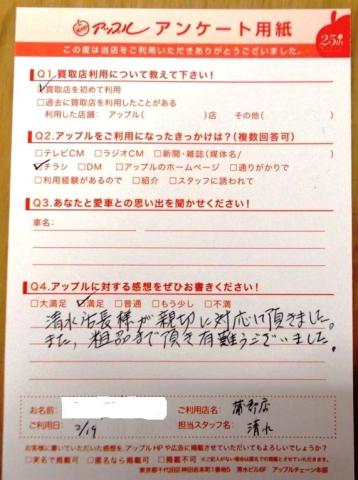 アップル アンケート用紙
25th
この度は当店をご利用いただきありがとうございました。
Q1.買取店利用について教えて下さい!
☑買取店を初めて利用
□過去に買取店を利用したことがある
利用した店舗： アップル( )店 その他( )
Q2.アップルをご利用になったきっかけは?(複数回答可)
□テレビCM □ラジオCM □新聞・雑誌(媒体名/ )
☑チラシ □DM □アップルのホームページ □通りがかりで
□利用経験があるので □紹介 □スタッフに誘われて
Q3.あなたと愛車との思い出を聞かせください!
車名：
Q4.アップルに対する感想をぜひお書きください!
□大満足 ☑満足 □普通 □もう少し □不満
清水店長様が親切に対応して頂きました。
また、粗品まで頂き有難うございました。
お名前: ご利用店名: 蒲町店
ご利用日: 2/19 担当スタッフ名: 清水
お客様に書いていただいた感想を、アップルHPや広告に掲載させていただいてもよろしいでしょうか?
□実名で掲載可 □匿名なら掲載可 □掲載不可 ※ご記入がない場合は匿名での掲載とさせていただきます。
東京都千代田区神田岩本町1番地5 清水ビル6F アップルチェーン本部